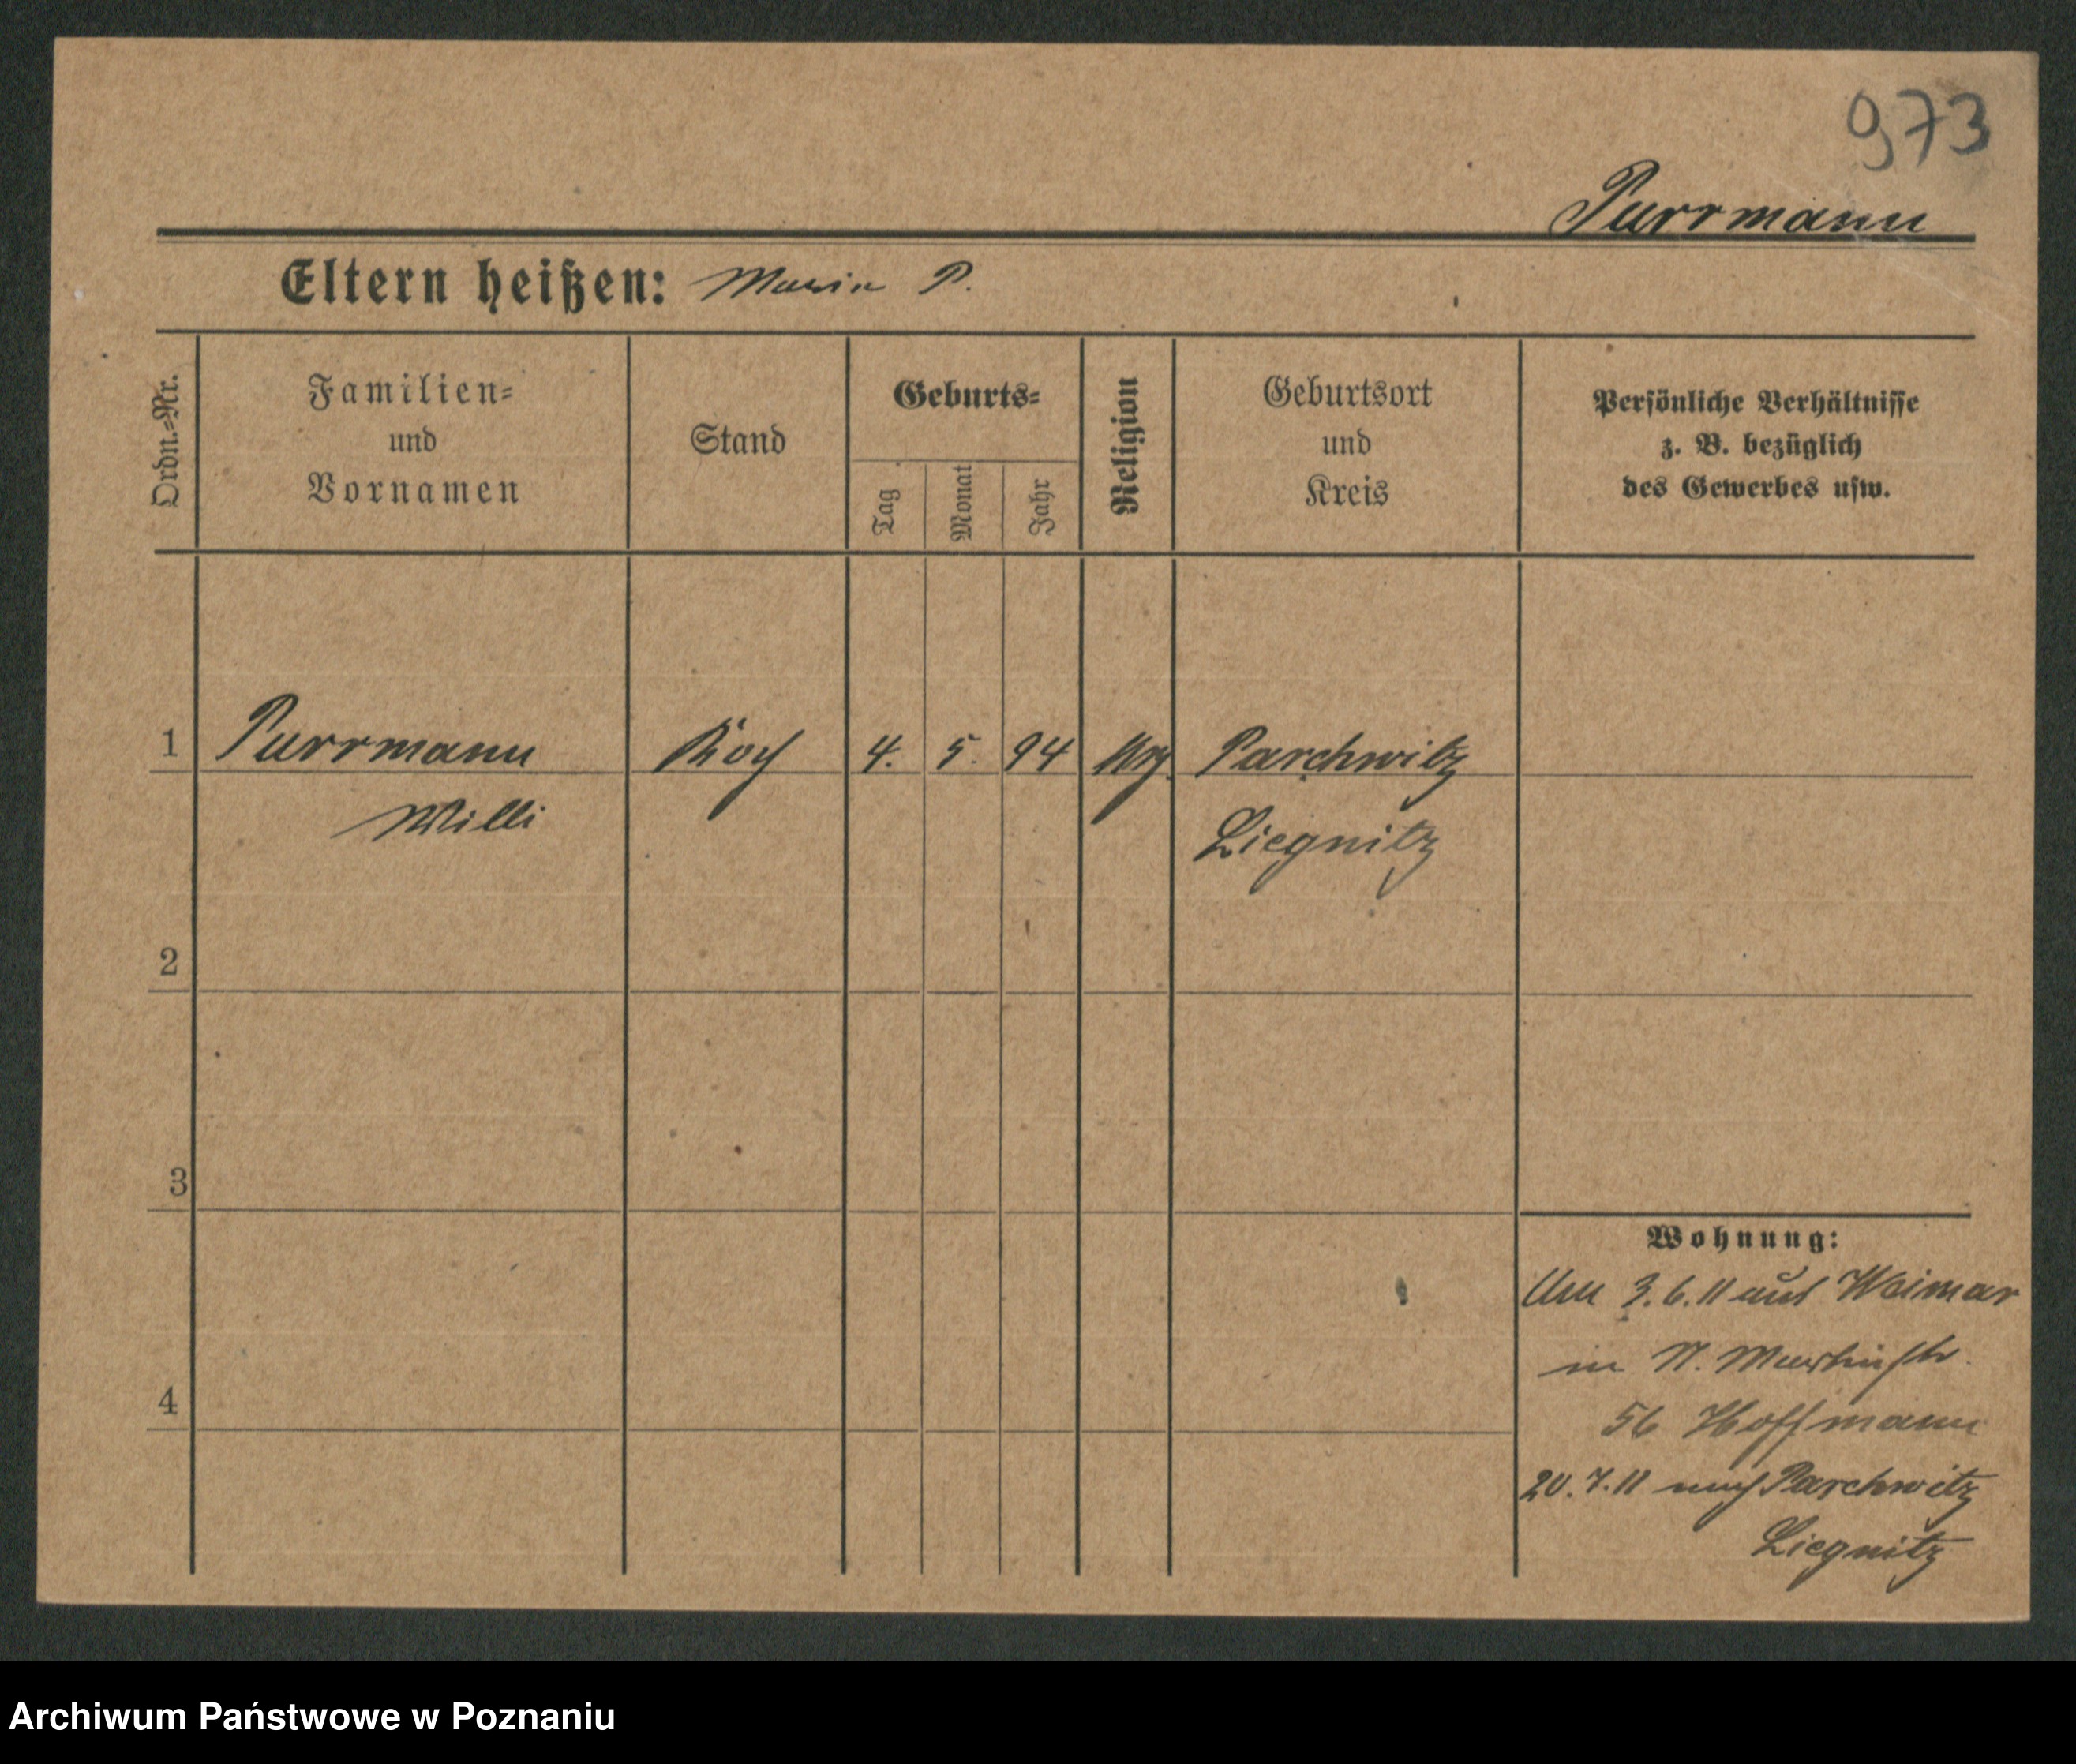 973
Purrmann
Eltern heißen: Maria P.
Ordn.=Nr.
Familien=
und
Vornamen
Stand
Geburts=
Tag
Monat
Jahr
Religion
Geburtsort
und
Kreis
Persönliche Verhältnisse
z. B. bezüglich
des Gewerbes usw.
1 Purrmann Koch 4. 5. 94 Parchwitz
Willi Liegnitz
2
3
4
Wohnung:
3.6.11 aus Weimar
in
56 Hoffmann
20.7.11 nach Parchwitz
Liegnitz
Archiwum Państwowe w Poznaniu